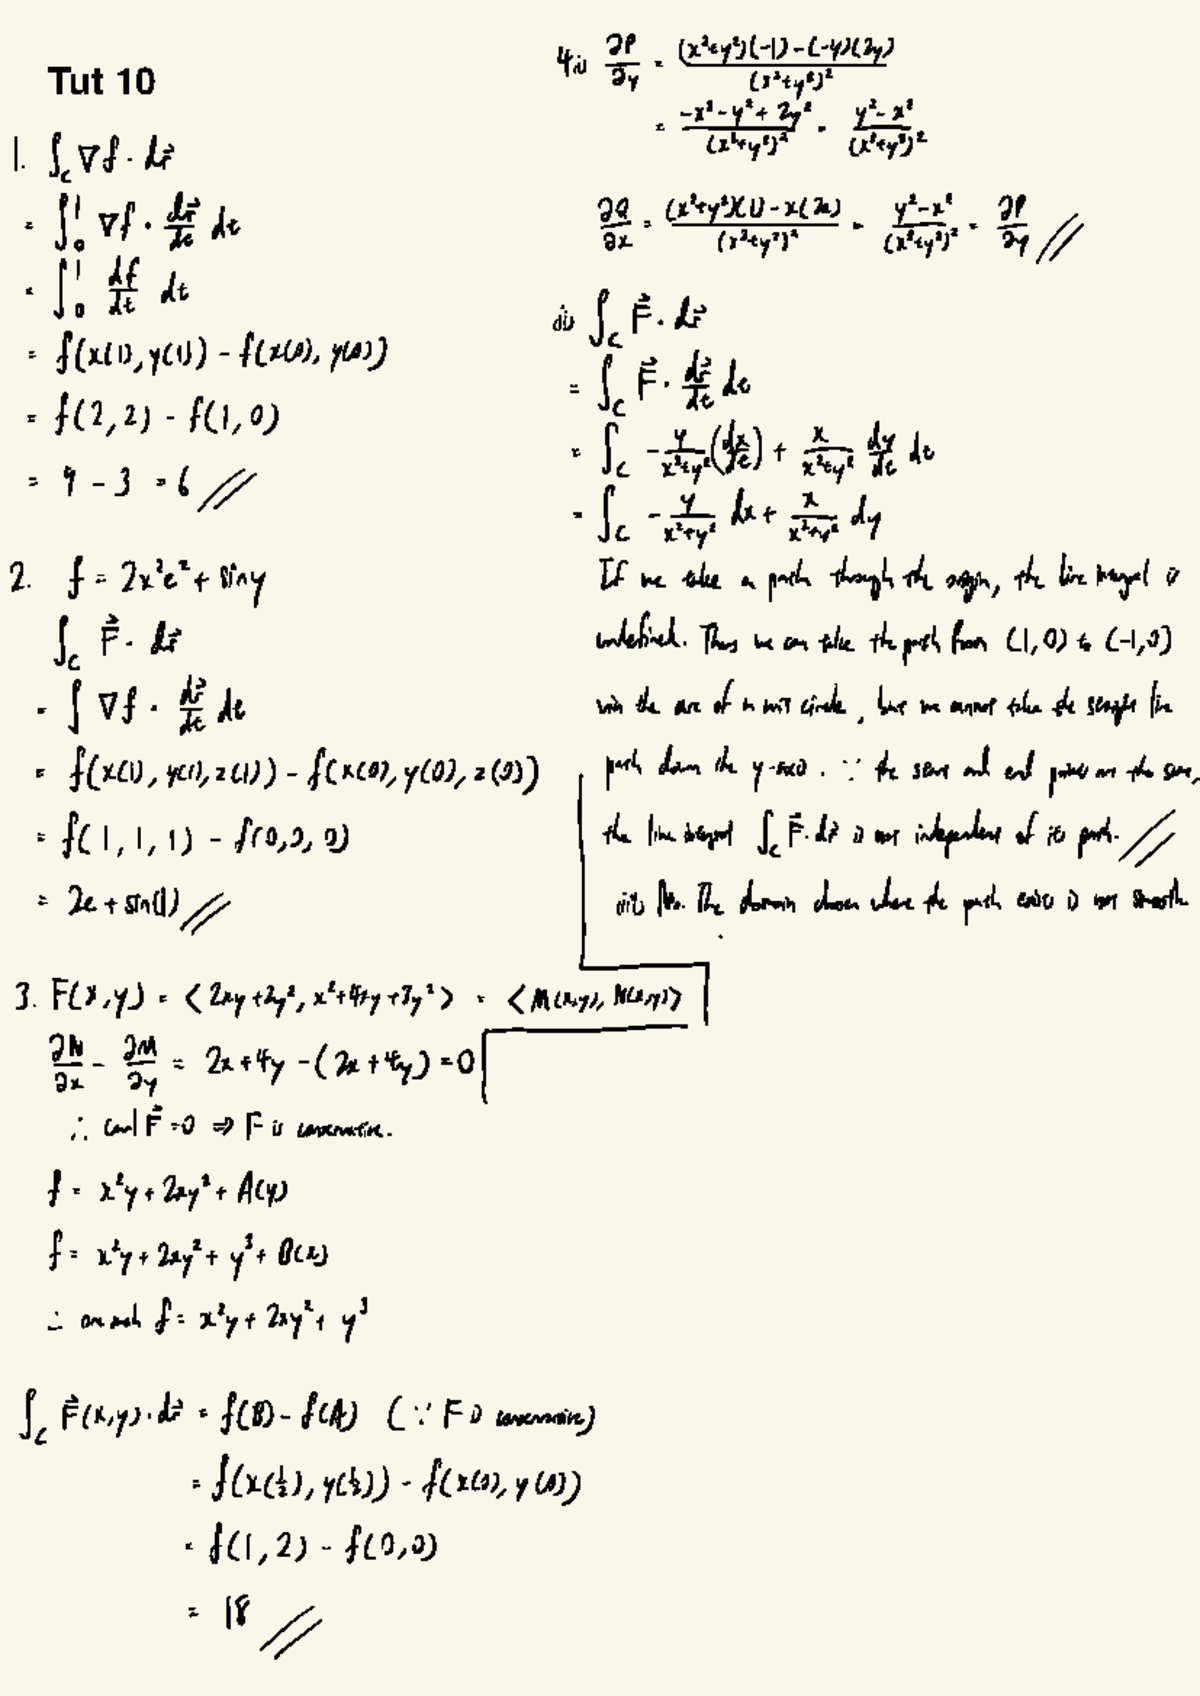 Tut 10
1. ∫_C ∇f · dr⃗
= ∫_0^1 ∇f · dr⃗/dt dt
= ∫_0^1 df/dt dt
= f(x(1), y(1)) - f(x(0), y(0))
= f(2, 2) - f(1, 0)
= 9 - 3 = 6 //
2. f = 2x²e^z + sin y
∫_C F⃗ · dr⃗
= ∫ ∇f · dr⃗/dt dt
= f(x(1), y(1), z(1)) - f(x(0), y(0), z(0))
= f(1, 1, 1) - f(0, 0, 0)
= 2e + sin(1) //
3. F(x, y) = ⟨2xy + 2y², x² + 4xy + 3y²⟩ = ⟨M(x,y), N(x,y)⟩
∂N/∂x - ∂M/∂y = 2x + 4y - (2x + 4y) = 0
∴ curl F⃗ = 0 ⇒ F is conservative.
f = x²y + 2xy² + A(y)
f = x²y + 2xy² + y³ + B(x)
∴ one such f = x²y + 2xy² + y³
∫_C F⃗(x,y) · dr⃗ = f(B) - f(A) (∵ F is conservative)
= f(x(½), y(½)) - f(x(0), y(0))
= f(1, 2) - f(0, 0)
= 18 //
4i) ∂P/∂y = ((x²+y²)(-1) - (-y)(2y))/(x²+y²)²
= (-x² - y² + 2y²)/(x²+y²)² = (y² - x²)/(x²+y²)²
∂Q/∂x = ((x²+y²)(1) - x(2x))/(x²+y²)² = (y² - x²)/(x²+y²)² = ∂P/∂y //
ii) ∫_C F⃗ · dr⃗
= ∫_C F⃗ · dr⃗/dt dt
= ∫_C - y/(x²+y²) (dx/dt) + x/(x²+y²) dy/dt dt
= ∫_C - y/(x²+y²) dx + x/(x²+y²) dy
If we take a path through the origin, the line integral is
undefined. Thus we can take the path from (1, 0) to (-1, 0)
via the arc of a unit circle, but we cannot take the straight line
path down the y-axis. ∵ the start and end points are the same,
the line integral ∫_C F⃗ · dr⃗ is not independent of its path. //
iii) No. The domain chosen where the path exists is not smooth